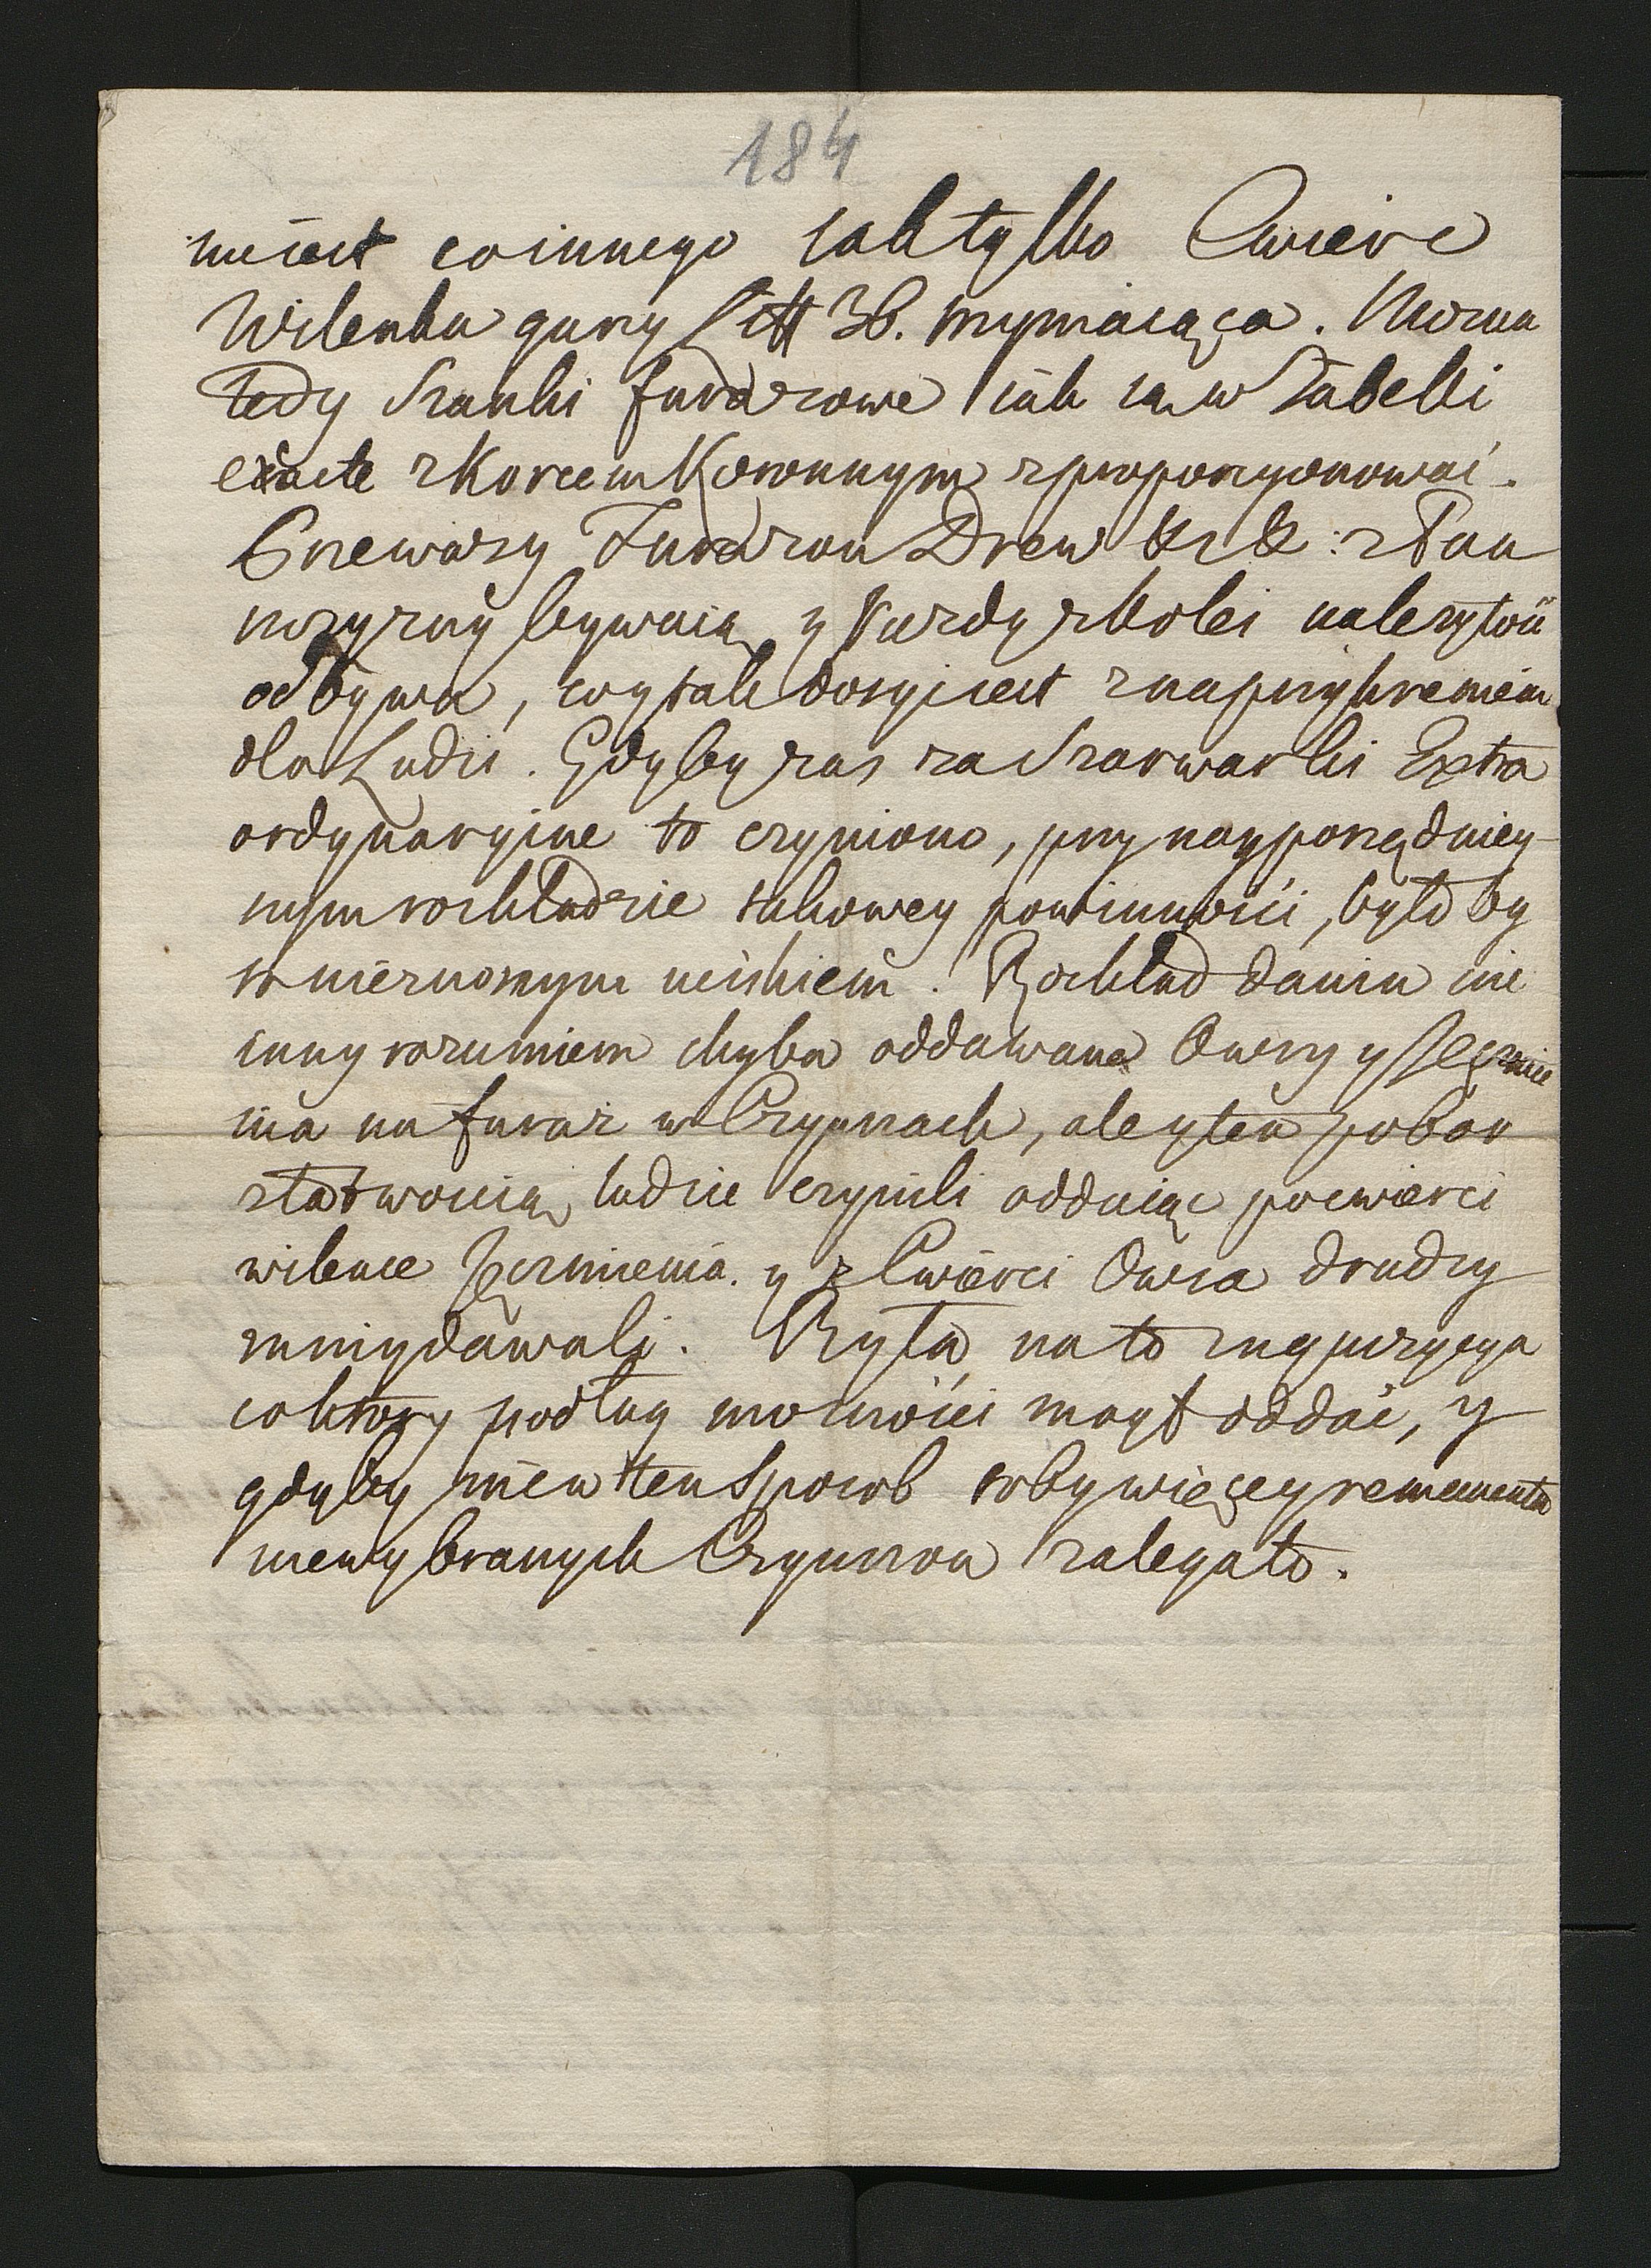 184
nie iest co innego iak tylko Cwierc
Wilenka garcy Litt 36. trzymaiąca. Można
tedy Szanki furazowe iak są w Tabelli
exacte z Korcem Koronnym zproporcyonować.
Przewozy Furazow Drew &c &c: z Pau
szyzny bywaią y każdy z kolei należytosc
odbywa, co y tak dosyc iest z naprzykrzeniem
dla Ludzi. Gdyby zas za Szarwarki Extra
ordynaryine to czyniono, przy nayporządniey-
szym rozkładzie takowey powinności, było by
to nieznosnym uciskiem. Rozkład danin nie
inny rozumiem chyba oddawane Owsy y Jęczmie
nia na furaż w Czynszach, ale y ten pobor
z łatwoscią ludzie czynili oddaiąc po cwierci
wilence Jęczmienia. y 2 Cwierci Owsa drudzy
mniey dawali. Była na to inquizycya
co ktory podług możności mogł oddać, y
gdyby nie w ten Sposob toby więcey rememento
niewybranych Czynszow zalegało.